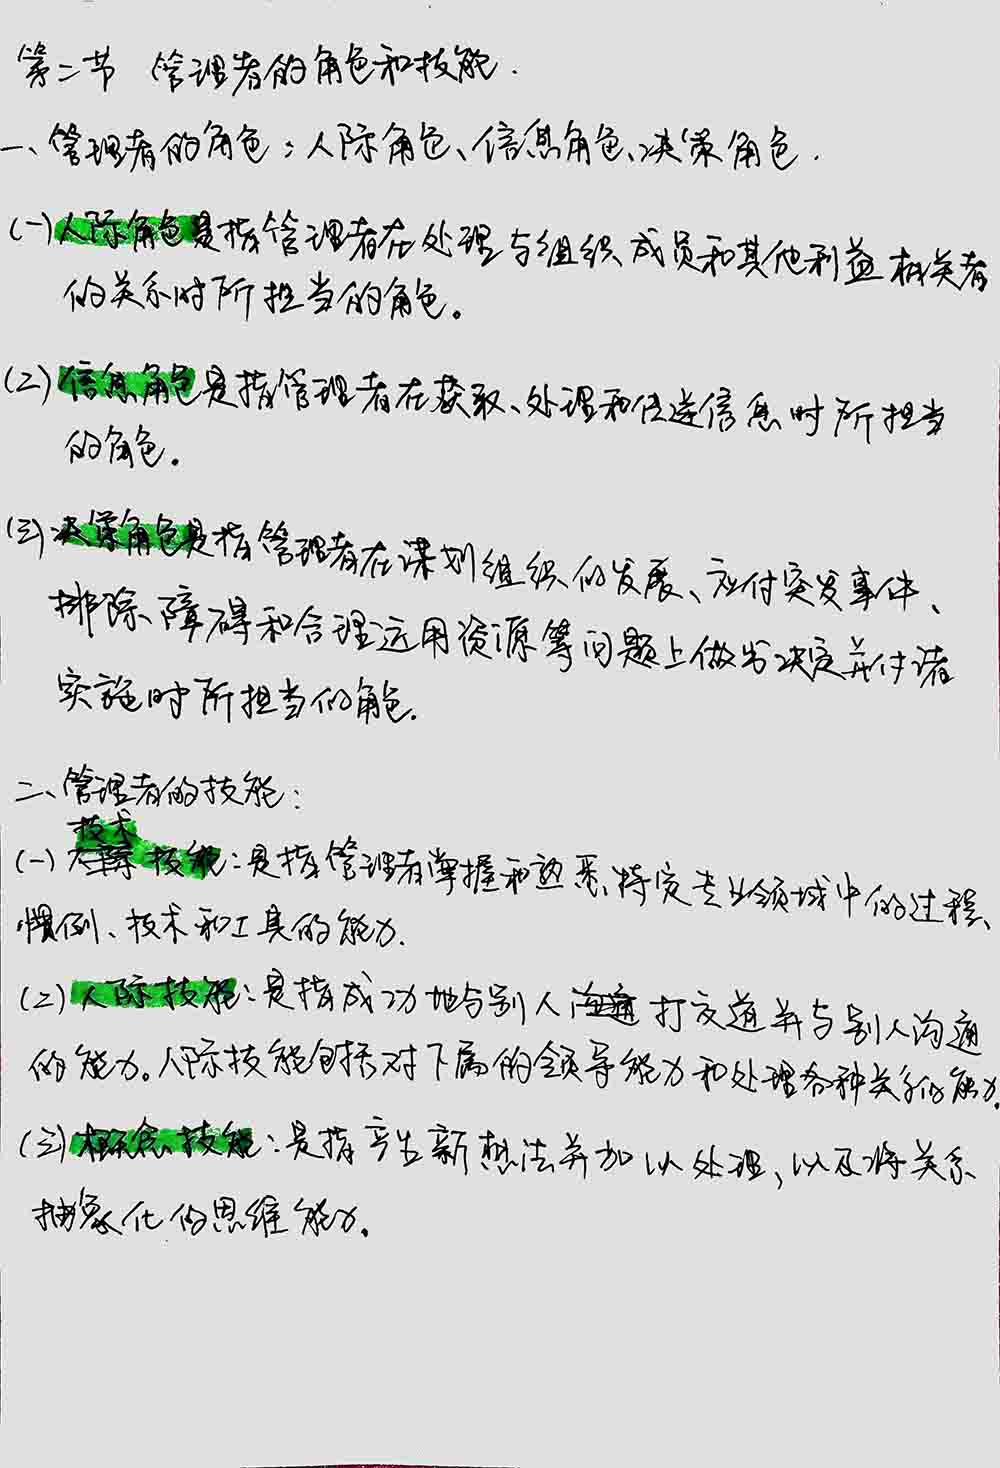 第二节 管理者的角色和技能.
一、管理者的角色:人际角色、信息角色、决策角色.
(一)人际角色是指管理者在处理与组织成员和其他利益相关者
的关系时所担当的角色。
(二)信息角色是指管理者在获取、处理和传递信息时所担当
的角色。
(三)决策角色是指管理者在谋划组织的发展、应付突发事件、
排除障碍和合理运用资源等问题上做出决定并付诸
实施时所担当的角色.
二、管理者的技能:
技术
(一)技能:是指管理者掌握和熟悉特定专业领域中的过程、
惯例、技术和工具的能力.
(二)人际技能:是指成功地与别人沟通打交道并与别人沟通
的能力。人际技能包括对下属的领导能力和处理各种关系的能力.
(三)概念技能:是指产生新想法并加以处理,以及将关系
抽象化的思维能力。